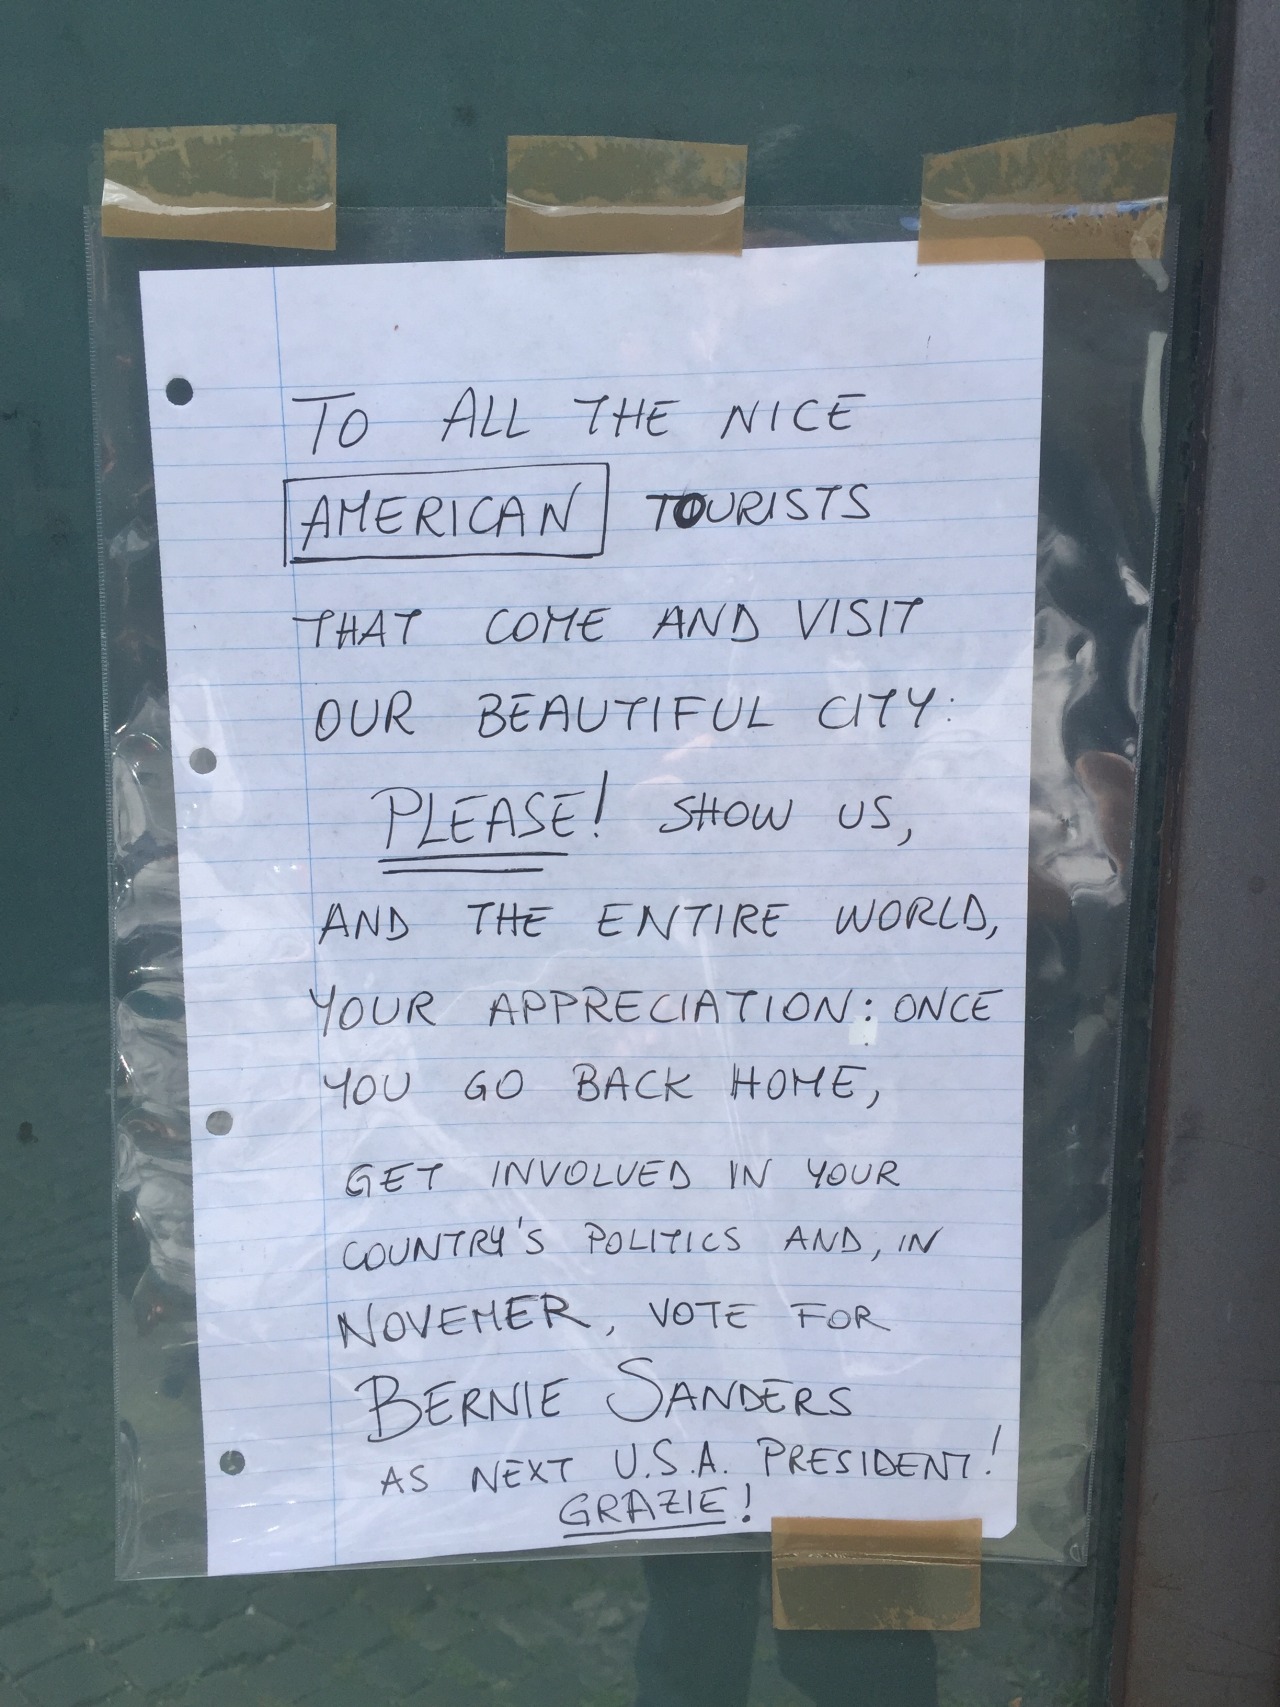 TO ALL THE NICE
AMERICAN TOURISTS
THAT COME AND VISIT
OUR BEAUTIFUL CITY:
PLEASE! SHOW US,
AND THE ENTIRE WORLD,
YOUR APPRECIATION: ONCE
YOU GO BACK HOME,
GET INVOLVED IN YOUR
COUNTRY'S POLITICS AND, IN
NOVEMER, VOTE FOR
BERNIE SANDERS
AS NEXT U.S.A. PRESIDENT!
GRAZIE!